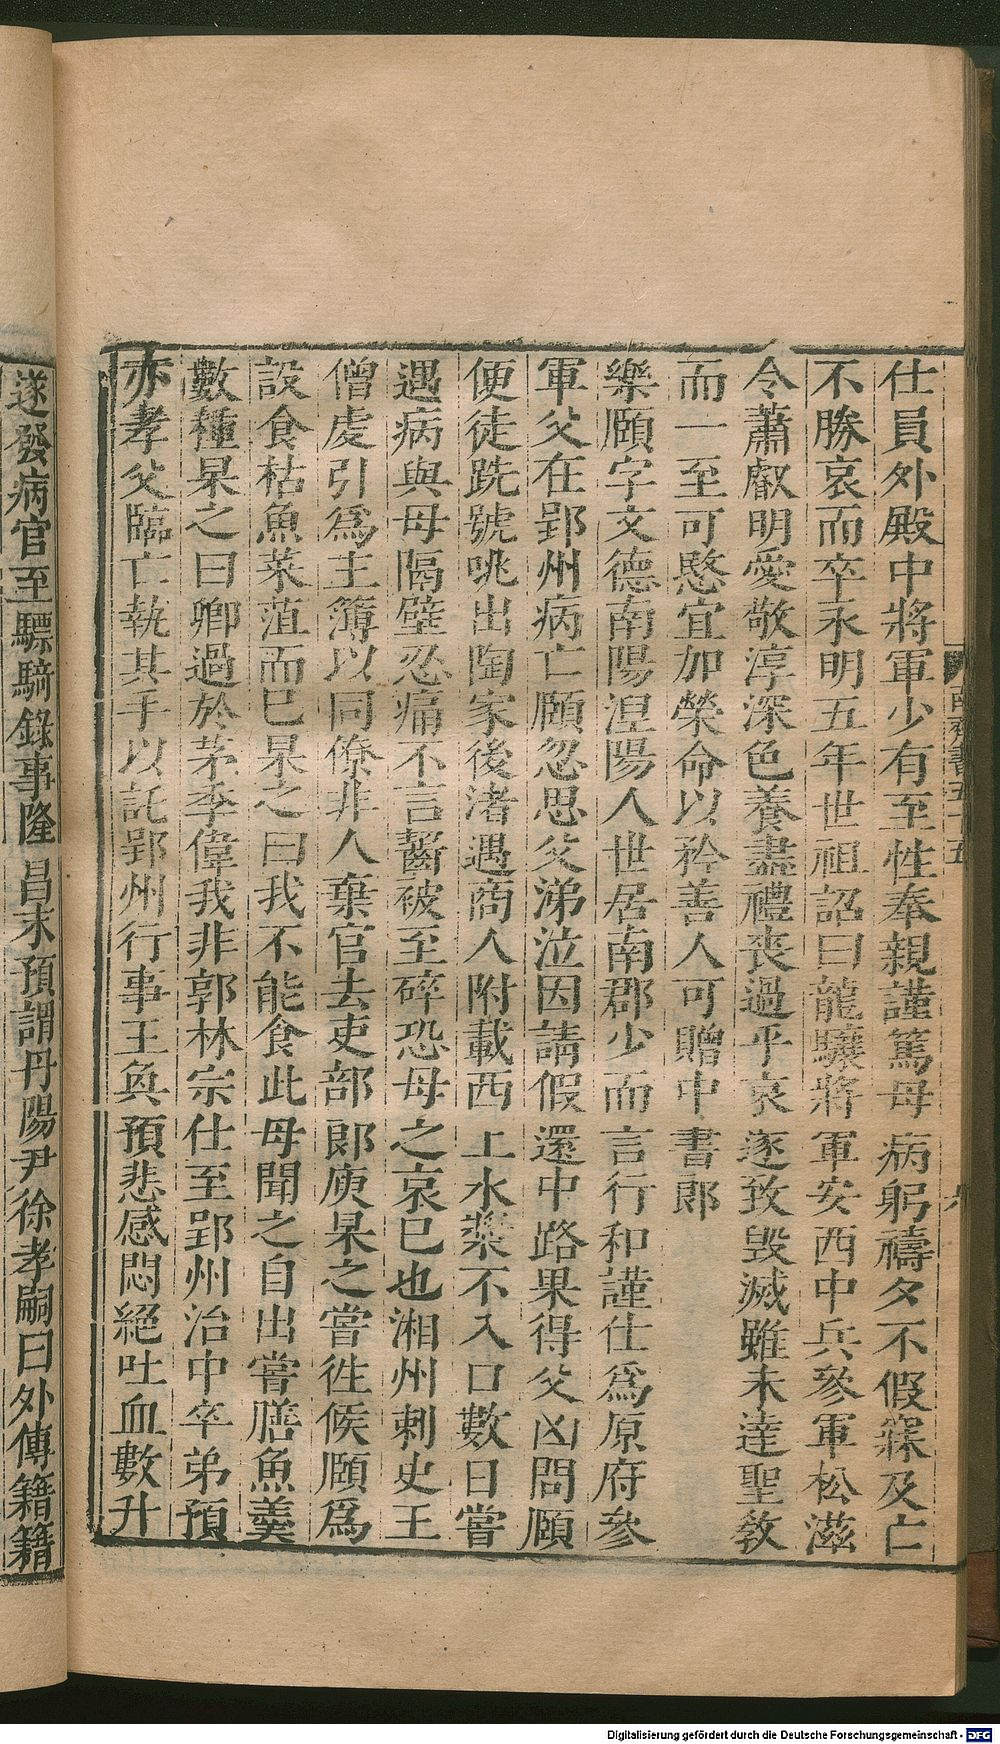 仕員外殿中將軍少有至性奉親謹篤母病躬禱夕不假寐及亡
不勝哀而卒永明五年世祖詔曰龍驤將軍安西中兵參軍松滋
令蕭叡明愛敬淳深色養盡禮喪過乎哀遂致毀滅雖未達聖教
而一至可愍宜加榮命以矜善人可贈中書郎
樂頤字文德南陽涅陽人世居南郡少而言行和謹仕爲原府參
軍父在郢州病亡頤忽思父涕泣因請假還中路果得父凶問頤
便徒跣號咷出陶家後渚遇商人附載西上水漿不入口數日嘗
遇病與母隔壁忍痛不言齧被至碎恐母之哀己也湘州刺史王
僧虔引爲主簿以同僚非人棄官去吏部郎庾杲之嘗徃候頤爲
設食枯魚菜葅而已杲之曰我不能食此母聞之自出嘗膳魚羹
數種杲之曰卿過於茅季偉我非郭林宗仕至郢州治中卒弟預
亦孝父臨亡執其手以託郢州行事王奐預悲感悶絕吐血數升
遂發病官至驃騎錄事隆昌末預謂丹陽尹徐孝嗣曰外傳籍籍
南齊書五十五
Digitalisierung gefördert durch die Deutsche Forschungsgemeinschaft - DFG